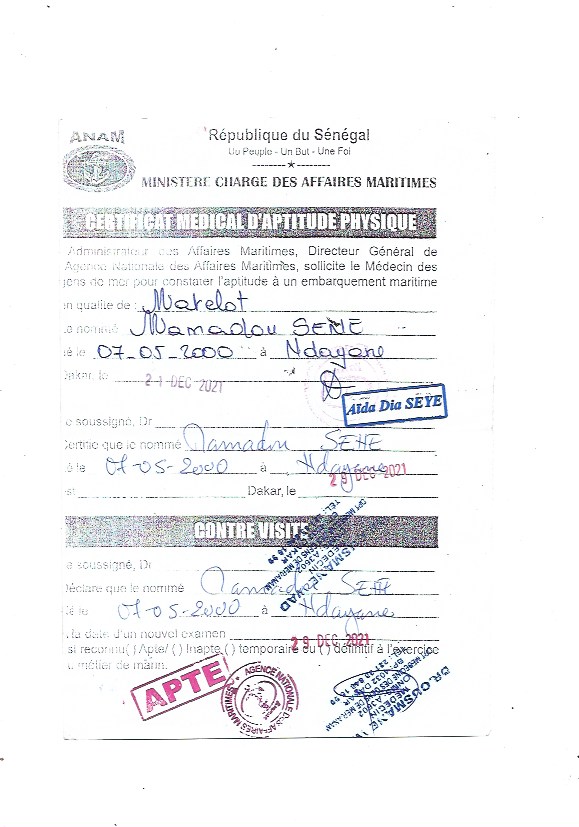 ANAM
République du Sénégal
Un Peuple - Un But - Une Foi
MINISTERE CHARGE DES AFFAIRES MARITIMES
CERTIFICAT MEDICAL D'APTITUDE PHYSIQUE
Administrateur des Affaires Maritimes, Directeur Général de
Agence Nationale des Affaires Maritimes, sollicite le Médecin des
gens de mer pour constater l'aptitude à un embarquement maritime
en qualite de : Matelot
le nommé Mamadou SENE
né le 07-05-2000 à Ndayane
Dakar, le 21 DEC 2021
Aïda Dia SEYE
le soussigné, Dr
Certifie que le nommé Mamadou SENE
né le 07-05-2000 à Ndayane
est Dakar, le 29 DEC 2021
CONTRE VISITE
le soussigné, Dr
Déclare que le nommé Mamadou SENE
né le 07-05-2000 à Ndayane
à la date d'un nouvel examen 29 DEC 2021
si reconnu( ) Apte/ ( ) Inapte ( ) temporaire ou ( ) définitif à l'exercice
du métier de marin.
APTE
AGENCE NATIONALE DES AFFAIRES MARITIMES
DR. OUSMANE
MEDECIN